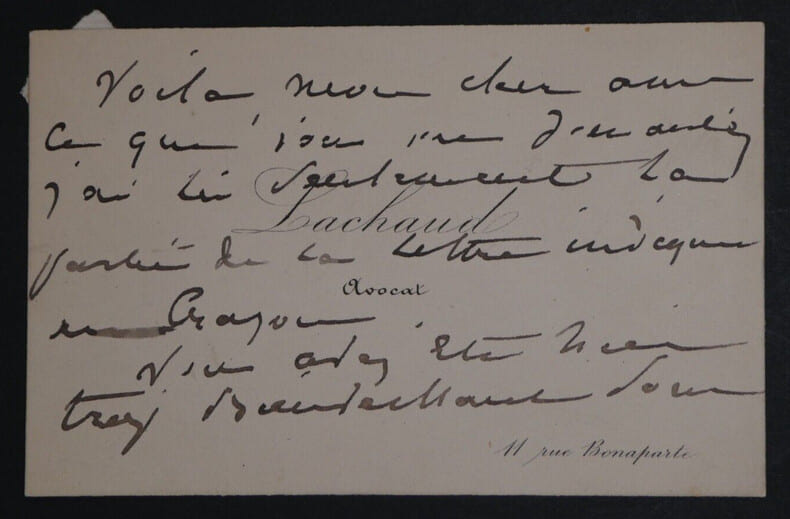 Voilà mon cher ami
ce que vous me demandez
j'ai lu seulement la
Lachaud
partie de la lettre indiquée
Avocat
au Crayon
Vous avez été hier
trop bienveillant pour
11 rue Bonaparte